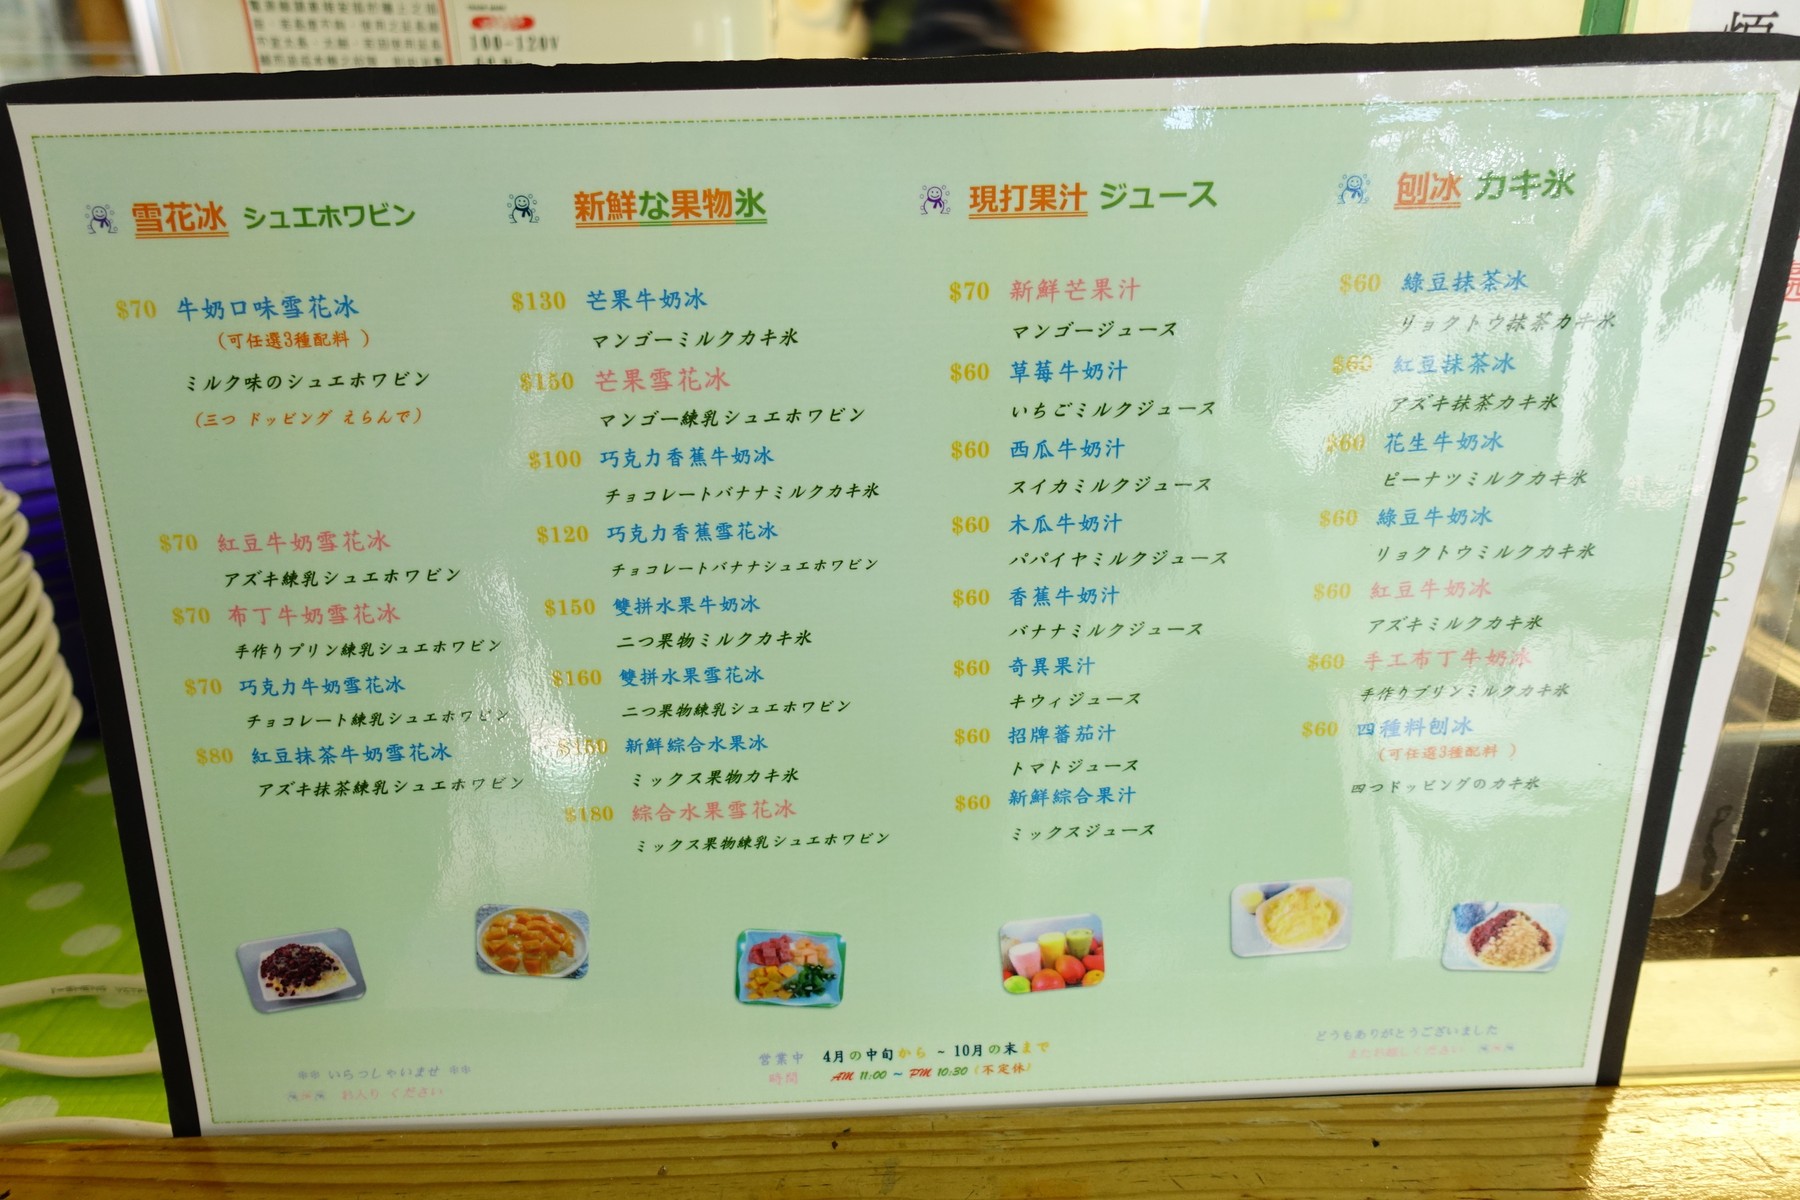 100-120V
雪花冰 シュエホワビン
$70 牛奶口味雪花冰
(可任選3種配料 )
ミルク味のシュエホワビン
(三つ ドッピング えらんで)
$70 紅豆牛奶雪花冰
アズキ練乳シュエホワビン
$70 布丁牛奶雪花冰
手作りプリン練乳シュエホワビン
$70 巧克力牛奶雪花冰
チョコレート練乳シュエホワビン
$80 紅豆抹茶牛奶雪花冰
アズキ抹茶練乳シュエホワビン
新鮮な果物氷
$130 芒果牛奶冰
マンゴーミルクカキ氷
$150 芒果雪花冰
マンゴー練乳シュエホワビン
$100 巧克力香蕉牛奶冰
チョコレートバナナミルクカキ氷
$120 巧克力香蕉雪花冰
チョコレートバナナシュエホワビン
$150 雙拼水果牛奶冰
二つ果物ミルクカキ氷
$160 雙拼水果雪花冰
二つ果物練乳シュエホワビン
$150 新鮮綜合水果冰
ミックス果物カキ氷
$180 綜合水果雪花冰
ミックス果物練乳シュエホワビン
現打果汁 ジュース
$70 新鮮芒果汁
マンゴージュース
$60 草莓牛奶汁
いちごミルクジュース
$60 西瓜牛奶汁
スイカミルクジュース
$60 木瓜牛奶汁
パパイヤミルクジュース
$60 香蕉牛奶汁
バナナミルクジュース
$60 奇異果汁
キウィジュース
$60 招牌蕃茄汁
トマトジュース
$60 新鮮綜合果汁
ミックスジュース
刨冰 カキ氷
$60 綠豆抹茶冰
リョクトウ抹茶カキ氷
$60 紅豆抹茶冰
アズキ抹茶カキ氷
$60 花生牛奶冰
ピーナツミルクカキ氷
$60 綠豆牛奶冰
リョクトウミルクカキ氷
$60 紅豆牛奶冰
アズキミルクカキ氷
$60 手工布丁牛奶冰
手作りプリンミルクカキ氷
$60 四種料刨冰
(可任選3種配料 )
四つドッピングのカキ氷
** いらっしゃいませ **
お入り ください
営業中 4月の中旬から ~ 10月の末まで
時間 AM 11:00 ~ PM 10:30 (不定休)
どうもありがとうございました
またお越しください